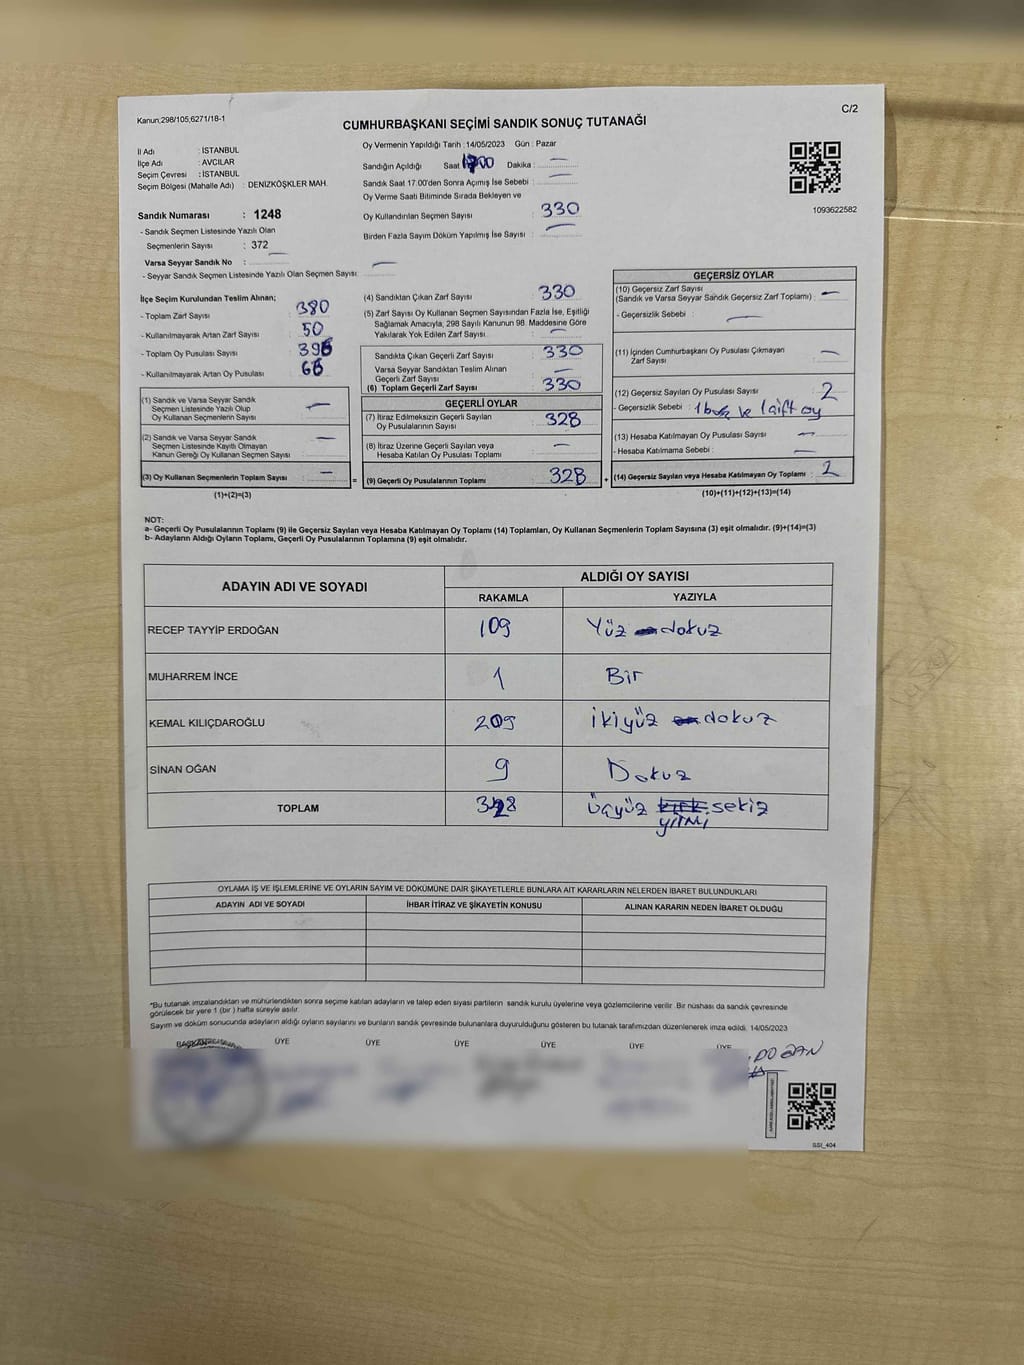 Kanun;298/105,6271/18-1
C/2
CUMHURBAŞKANI SEÇİMİ SANDIK SONUÇ TUTANAĞI
İl Adı : İSTANBUL
İlçe Adı : AVCILAR
Seçim Çevresi : İSTANBUL
Seçim Bölgesi (Mahalle Adı) : DENİZKÖŞKLER MAH.
Sandık Numarası : 1248
- Sandık Seçmen Listesinde Yazılı Olan
Seçmenlerin Sayısı : 372
Varsa Seyyar Sandık No : —
- Seyyar Sandık Seçmen Listesinde Yazılı Olan Seçmen Sayısı: —
Oy Vermenin Yapıldığı Tarih : 14/05/2023 Gün : Pazar
Sandığın Açıldığı Saat 1700 Dakika : —
Sandık Saat 17:00'den Sonra Açımış İse Sebebi : —
Oy Verme Saati Bitiminde Sırada Bekleyen ve
Oy Kullandırılan Seçmen Sayısı : 330
Birden Fazla Sayım Döküm Yapılmış İse Sayısı : —
1093622582
İlçe Seçim Kurulundan Teslim Alınan;
- Toplam Zarf Sayısı : 380
- Kullanılmayarak Artan Zarf Sayısı : 50
- Toplam Oy Pusulası Sayısı : 396
- Kullanılmayarak Artan Oy Pusulası : 66
(1) Sandık ve Varsa Seyyar Sandık
Seçmen Listesinde Yazılı Olup
Oy Kullanan Seçmenlerin Sayısı : —
(2) Sandık ve Varsa Seyyar Sandık
Seçmen Listesinde Kayıtlı Olmayan
Kanun Gereği Oy Kullanan Seçmen Sayısı : —
(3) Oy Kullanan Seçmenlerin Toplam Sayısı : — =
(1)+(2)=(3)
(4) Sandıktan Çıkan Zarf Sayısı : 330
(5) Zarf Sayısı Oy Kullanan Seçmen Sayısından Fazla İse, Eşitliği
Sağlamak Amacıyla, 298 Sayılı Kanunun 98. Maddesine Göre
Yakılarak Yok Edilen Zarf Sayısı : —
Sandıkta Çıkan Geçerli Zarf Sayısı : 330
Varsa Seyyar Sandıktan Teslim Alınan
Geçerli Zarf Sayısı : —
(6) Toplam Geçerli Zarf Sayısı : 330
GEÇERLİ OYLAR
(7) İtiraz Edilmeksizin Geçerli Sayılan
Oy Pusulalarının Sayısı : 328
(8) İtiraz Üzerine Geçerli Sayılan veya
Hesaba Katılan Oy Pusulası Toplamı : —
(9) Geçerli Oy Pusulalarının Toplamı : 328 +
GEÇERSİZ OYLAR
(10) Geçersiz Zarf Sayısı
(Sandık ve Varsa Seyyar Sandık Geçersiz Zarf Toplamı) : —
- Geçersizlik Sebebi : —
(11) İçinden Cumhurbaşkanı Oy Pusulası Çıkmayan
Zarf Sayısı : —
(12) Geçersiz Sayılan Oy Pusulası Sayısı : 2
- Geçersizlik Sebebi : 1 boş ve 1 çift oy
(13) Hesaba Katılmayan Oy Pusulası Sayısı : —
- Hesaba Katılmama Sebebi : —
(14) Geçersiz Sayılan veya Hesaba Katılmayan Oy Toplamı : 2
(10)+(11)+(12)+(13)=(14)
NOT:
a- Geçerli Oy Pusulalarının Toplamı (9) ile Geçersiz Sayılan veya Hesaba Katılmayan Oy Toplamı (14) Toplamları, Oy Kullanan Seçmenlerin Toplam Sayısına (3) eşit olmalıdır. (9)+(14)=(3)
b- Adayların Aldığı Oyların Toplamı, Geçerli Oy Pusulalarının Toplamına (9) eşit olmalıdır.
ADAYIN ADI VE SOYADI ALDIĞI OY SAYISI
RAKAMLA YAZIYLA
RECEP TAYYİP ERDOĞAN 109 Yüz dokuz
MUHARREM İNCE 1 Bir
KEMAL KILIÇDAROĞLU 209 ikiyüz dokuz
SİNAN OĞAN 9 Dokuz
TOPLAM 328 üçyüz kırk sekiz
yirmi
OYLAMA İŞ VE İŞLEMLERİNE VE OYLARIN SAYIM VE DÖKÜMÜNE DAİR ŞİKAYETLERLE BUNLARA AİT KARARLARIN NELERDEN İBARET BULUNDUKLARI
ADAYIN ADI VE SOYADI İHBAR İTİRAZ VE ŞİKAYETİN KONUSU ALINAN KARARIN NEDEN İBARET OLDUĞU
*Bu tutanak imzalandıktan ve mühürlendikten sonra seçime katılan adayların ve talep eden siyasi partilerin sandık kurulu üyelerine veya gözlemcilerine verilir. Bir nüshası da sandık çevresinde
görülecek bir yere 1 (bir) hafta süreyle asılır.
Sayım ve döküm sonucunda adayların aldığı oyların sayılarını ve bunların sandık çevresinde bulunanlara duyurulduğunu gösteren bu tutanak tarafımızdan düzenlenerek imza edildi. 14/05/2023
BAŞKAN ÜYE ÜYE ÜYE ÜYE ÜYE ÜYE
DOĞAN
SSI_404